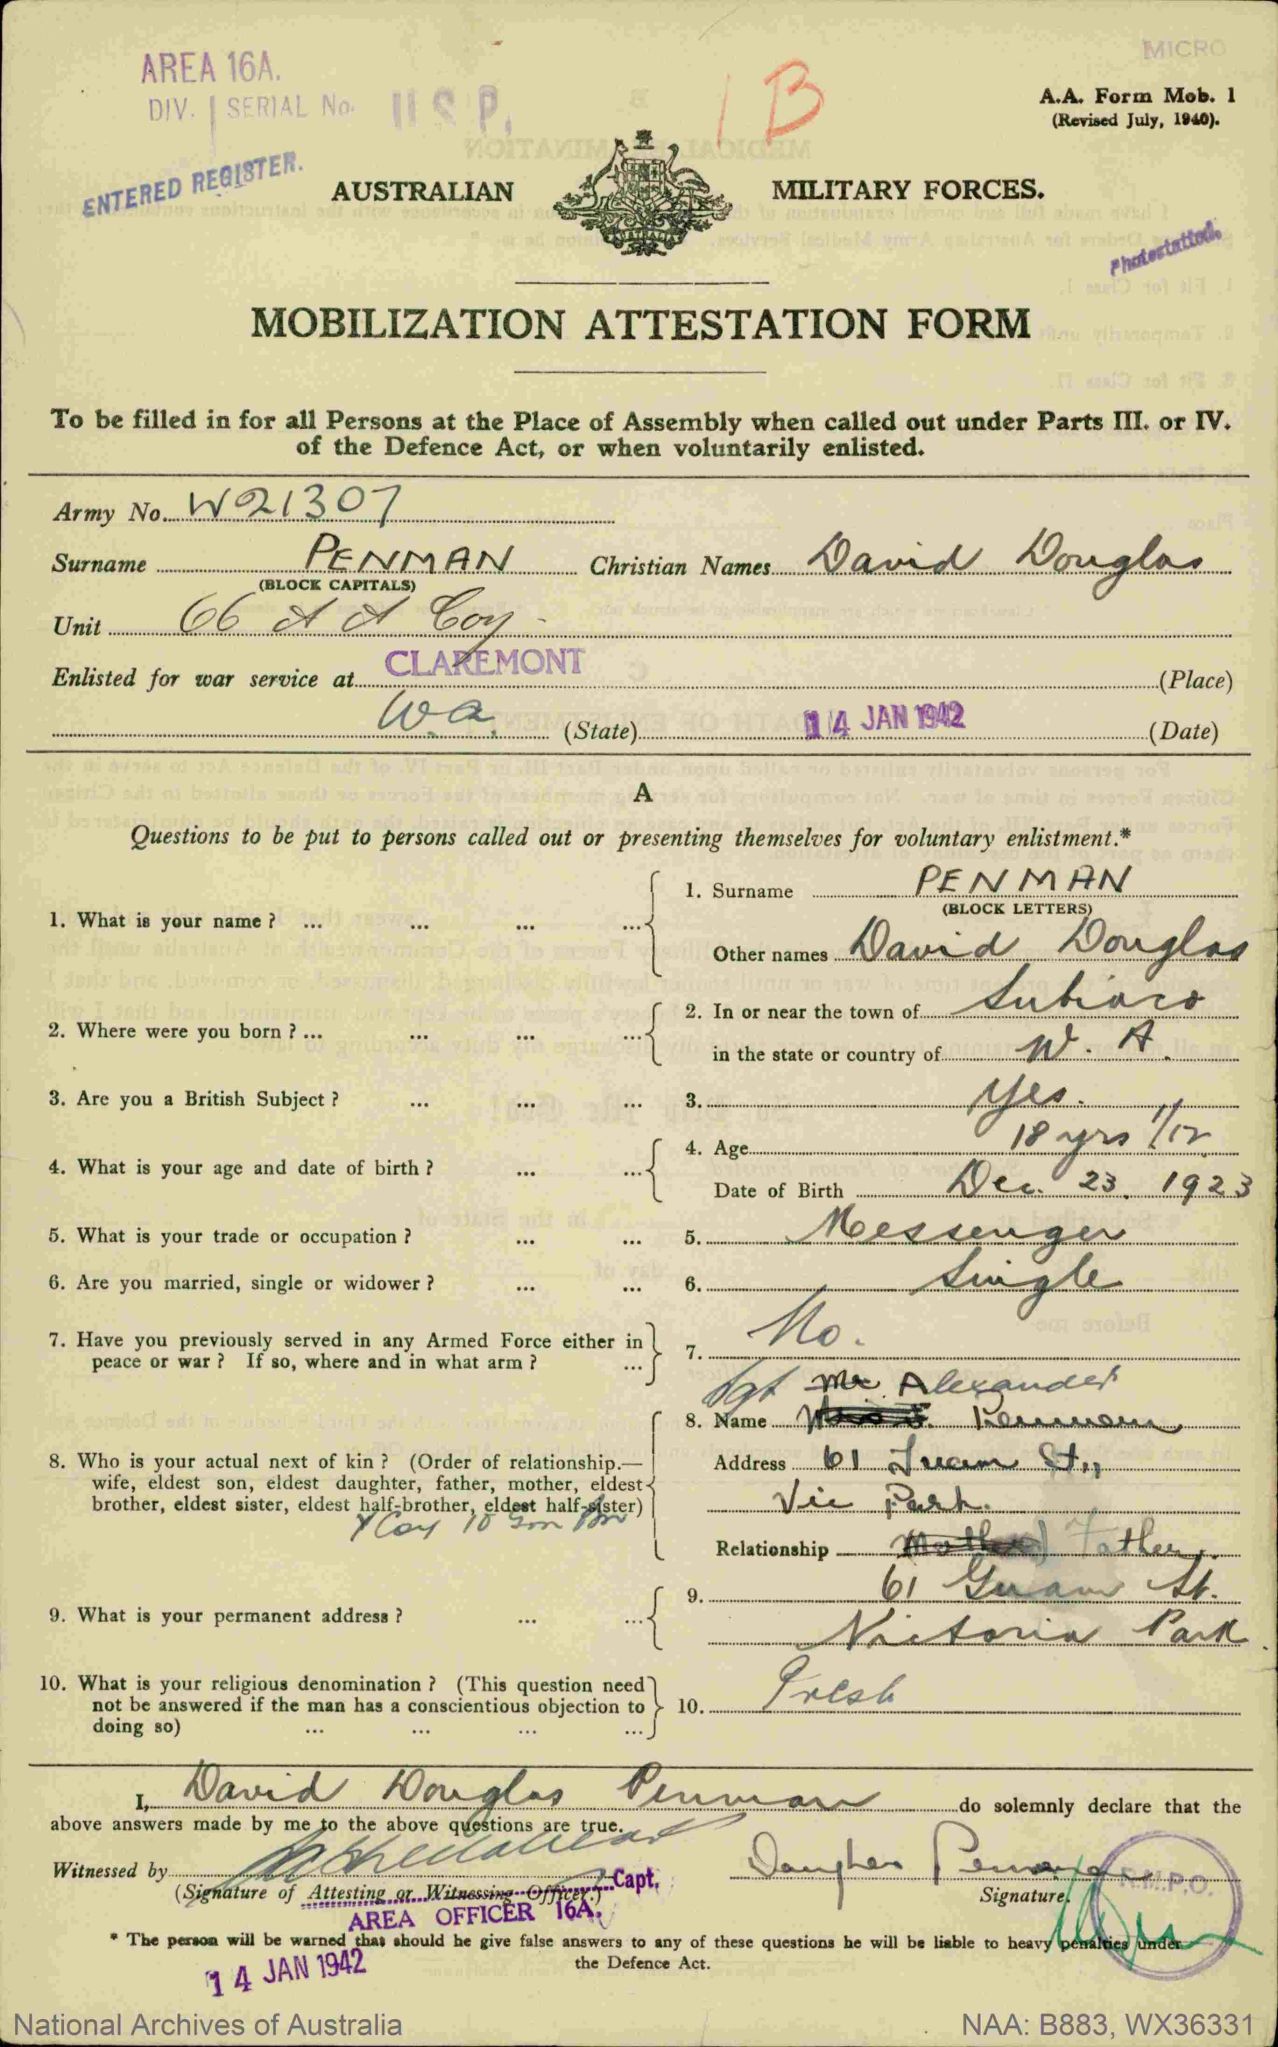 MICRO
AREA 16A.
DIV. SERIAL No. U S P.
1 B
A.A. Form Mob. 1
(Revised July, 1940).
ENTERED REGISTER.
AUSTRALIAN MILITARY FORCES.
Photostatted.
MOBILIZATION ATTESTATION FORM
To be filled in for all Persons at the Place of Assembly when called out under Parts III. or IV.
of the Defence Act, or when voluntarily enlisted.
Army No. W21307
Surname PENMAN Christian Names David Douglas
(BLOCK CAPITALS)
Unit 66 A A Coy
Enlisted for war service at CLAREMONT (Place)
W.a. (State) 14 JAN 1942 (Date)
A
Questions to be put to persons called out or presenting themselves for voluntary enlistment.*
1. What is your name ? ... ... ... ... 1. Surname PENMAN
(BLOCK LETTERS)
Other names David Douglas
2. Where were you born ? ... ... ... ... 2. In or near the town of Subiaco
in the state or country of W. A.
3. Are you a British Subject ? ... ... ... 3. Yes.
4. What is your age and date of birth ? ... ... 4. Age 18 yrs 1/12
Date of Birth Dec. 23. 1923
5. What is your trade or occupation ? ... ... 5. Messenger
6. Are you married, single or widower ? ... ... 6. Single
7. Have you previously served in any Armed Force either in
peace or war ? If so, where and in what arm ? ... 7. No.
Sgt Mr. Alexander
8. Name Penman
8. Who is your actual next of kin ? (Order of relationship.—
wife, eldest son, eldest daughter, father, mother, eldest
brother, eldest sister, eldest half-brother, eldest half-sister)
Address 61 Guam St.,
Vic Park.
Relationship Mother Father.
9. What is your permanent address ? ... ... 9. 61 Guam St.
Victoria Park
10. What is your religious denomination ? (This question need
not be answered if the man has a conscientious objection to
doing so) ... ... ... ... 10. Presb
I, David Douglas Penman do solemnly declare that the
above answers made by me to the above questions are true.
Witnessed by Capt. Douglas Penman
(Signature of Attesting or Witnessing Officer.) Signature.
AREA OFFICER 16A.
R.M.P.O.
* The person will be warned that should he give false answers to any of these questions he will be liable to heavy penalties under
the Defence Act.
14 JAN 1942
National Archives of Australia NAA: B883, WX36331